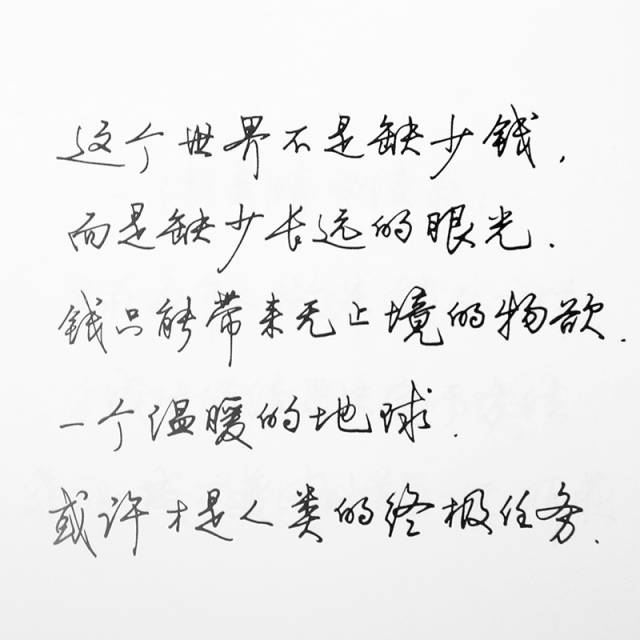 这个世界不是缺少钱，
而是缺少长远的眼光.
钱只能带来无止境的物欲.
一个温暖的地球.
或许才是人类的终极任务.